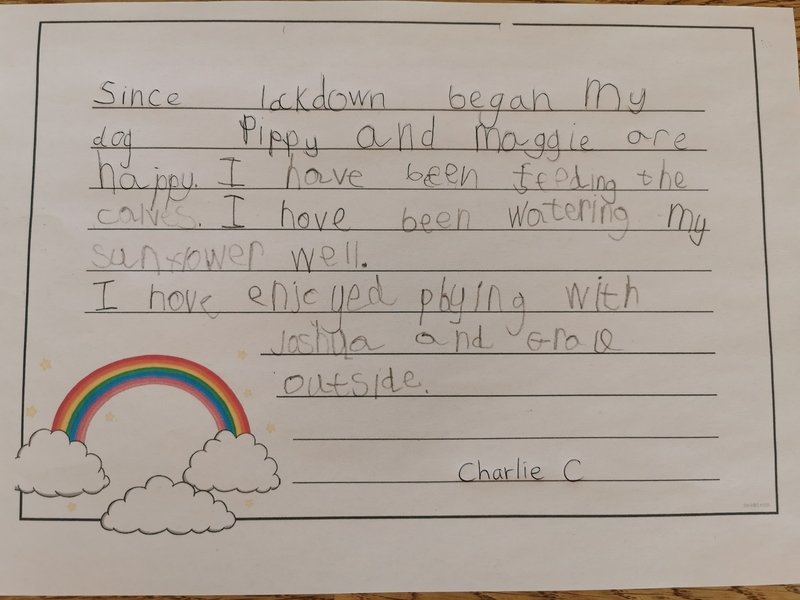 Since lockdown began My
dog Pippy and Maggie are
happy. I have been feeding the
calves. I have been watering my
sunflower well.
I have enjoyed playing with
Joshua and Grace
outside.
Charlie C